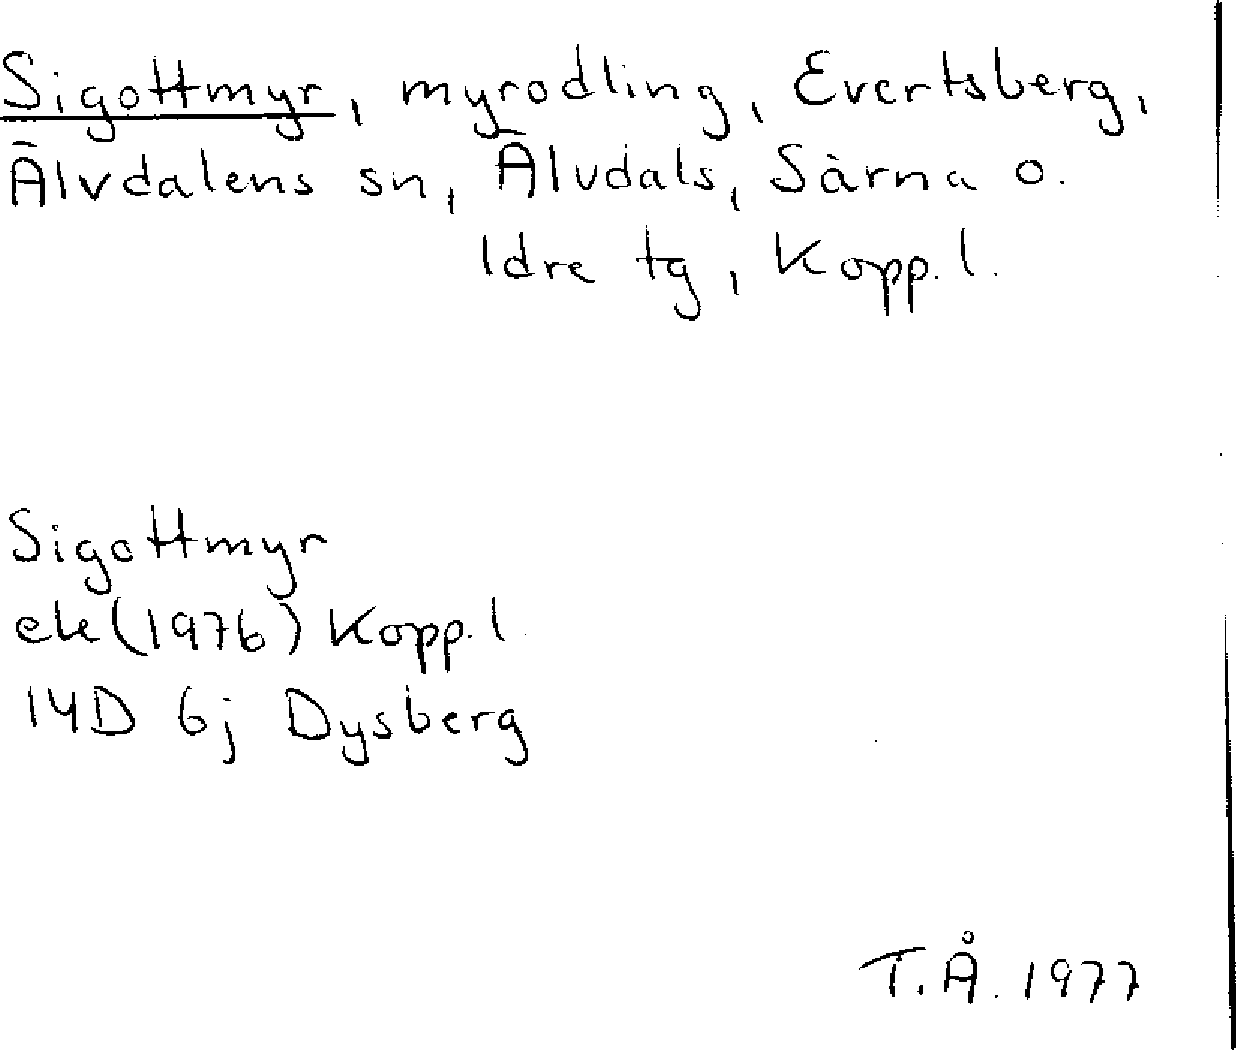 Sigottmyr, myrodling, Evertsberg,
Älvdalens sn, Älvdals, Särna o.
Idre tg, Kopp. l.
Sigottmyr
ek (1976) Kopp. l
14D 6j Dysberg
T.Å. 1977